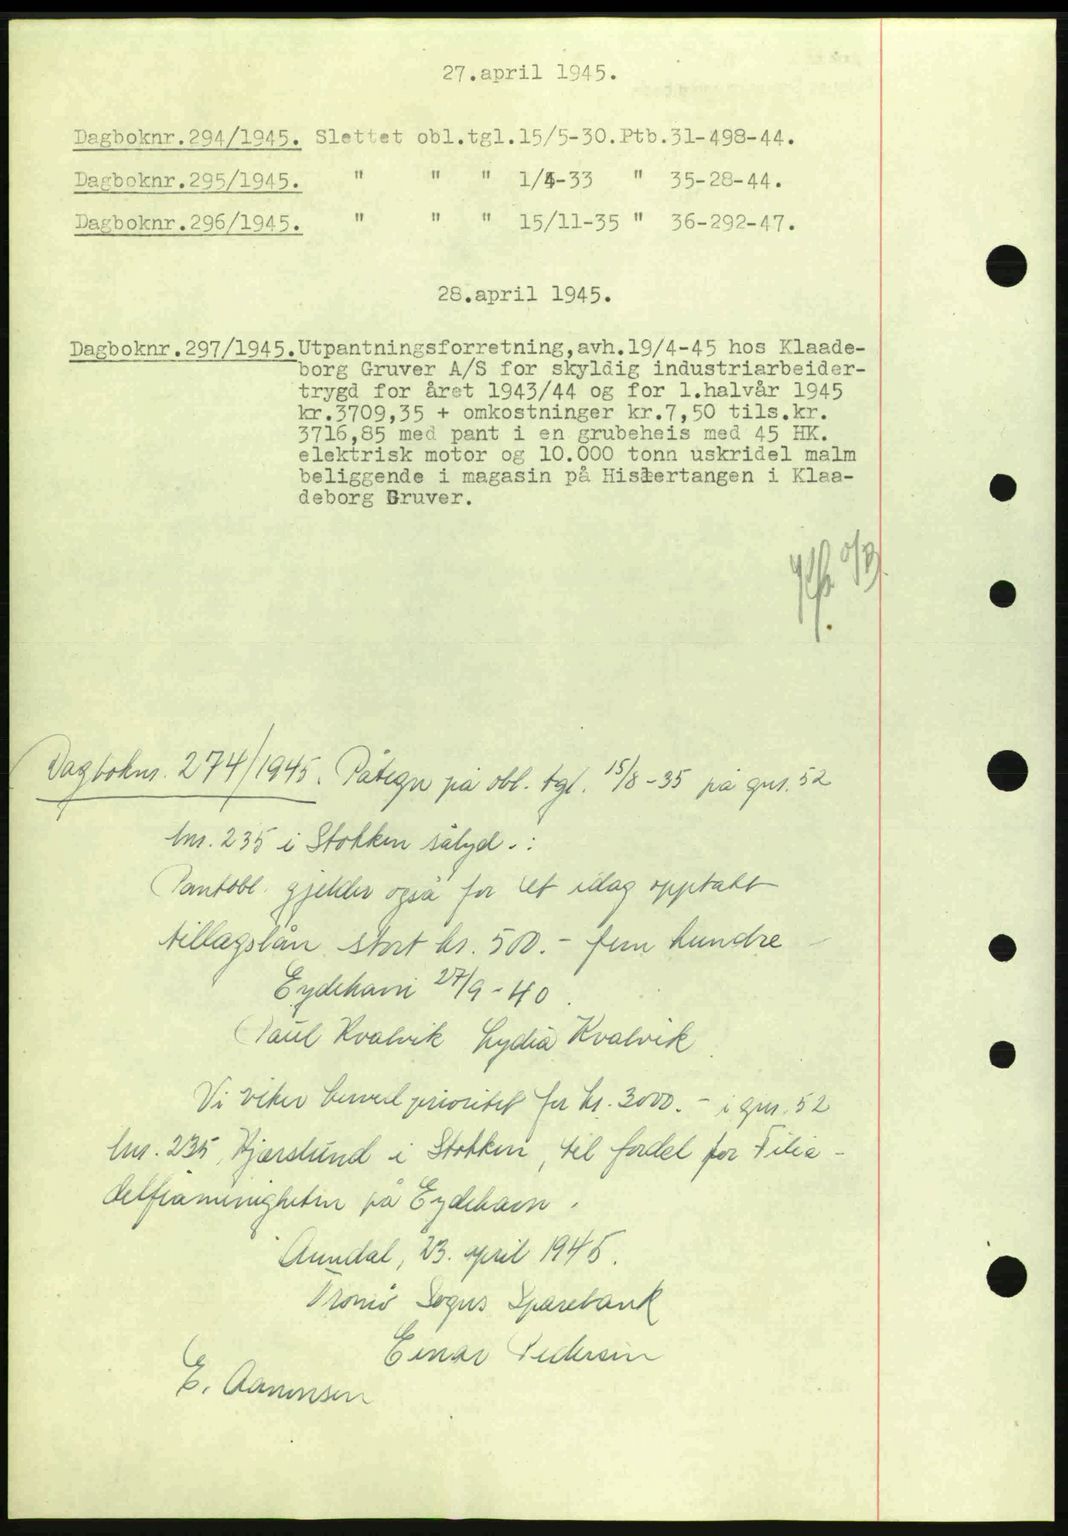 27.april 1945.
Dagboknr.294/1945. Slettet obl.tgl.15/5-30.Ptb.31-498-44.
Dagboknr.295/1945. " " " 1/4-33 " 35-28-44.
Dagboknr.296/1945. " " " 15/11-35 " 36-292-47.
28.april 1945.
Dagboknr.297/1945. Utpantningsforretning,avh.19/4-45 hos Klaade-
borg Gruver A/S for skyldig industriarbeider-
trygd for året 1943/44 og for 1.halvår 1945
kr.3709,35 + omkostninger kr.7,50 tils.kr.
3716,85 med pant i en grubeheis med 45 HK.
elektrisk motor og 10.000 tonn uskridel malm
beliggende i magasin på Hisertangen i Klaa-
deborg Gruver.
Dagboknr. 274/1945. Påtegn på obl. tgl. 15/8-35 på gnr. 52
bnr. 235 i Stokken sålyd.:
Pantobl. gjelder også for et idag opptatt
tillagslån stort kr. 500.- fem hundre
Eydehavn 27/9-40.
Paul Kvalvik Lydia Kvalvik
Vi viker herved prioritet for kr. 3000.- i gnr. 52
bnr. 235, Kjærslund i Stokken, til fordel for Filia-
delfiamenigheten på Eydehavn.
Arendal, 23. april 1945.
Tromø Sogns Sparebank
Einar Pedersen
E. Aanonsen